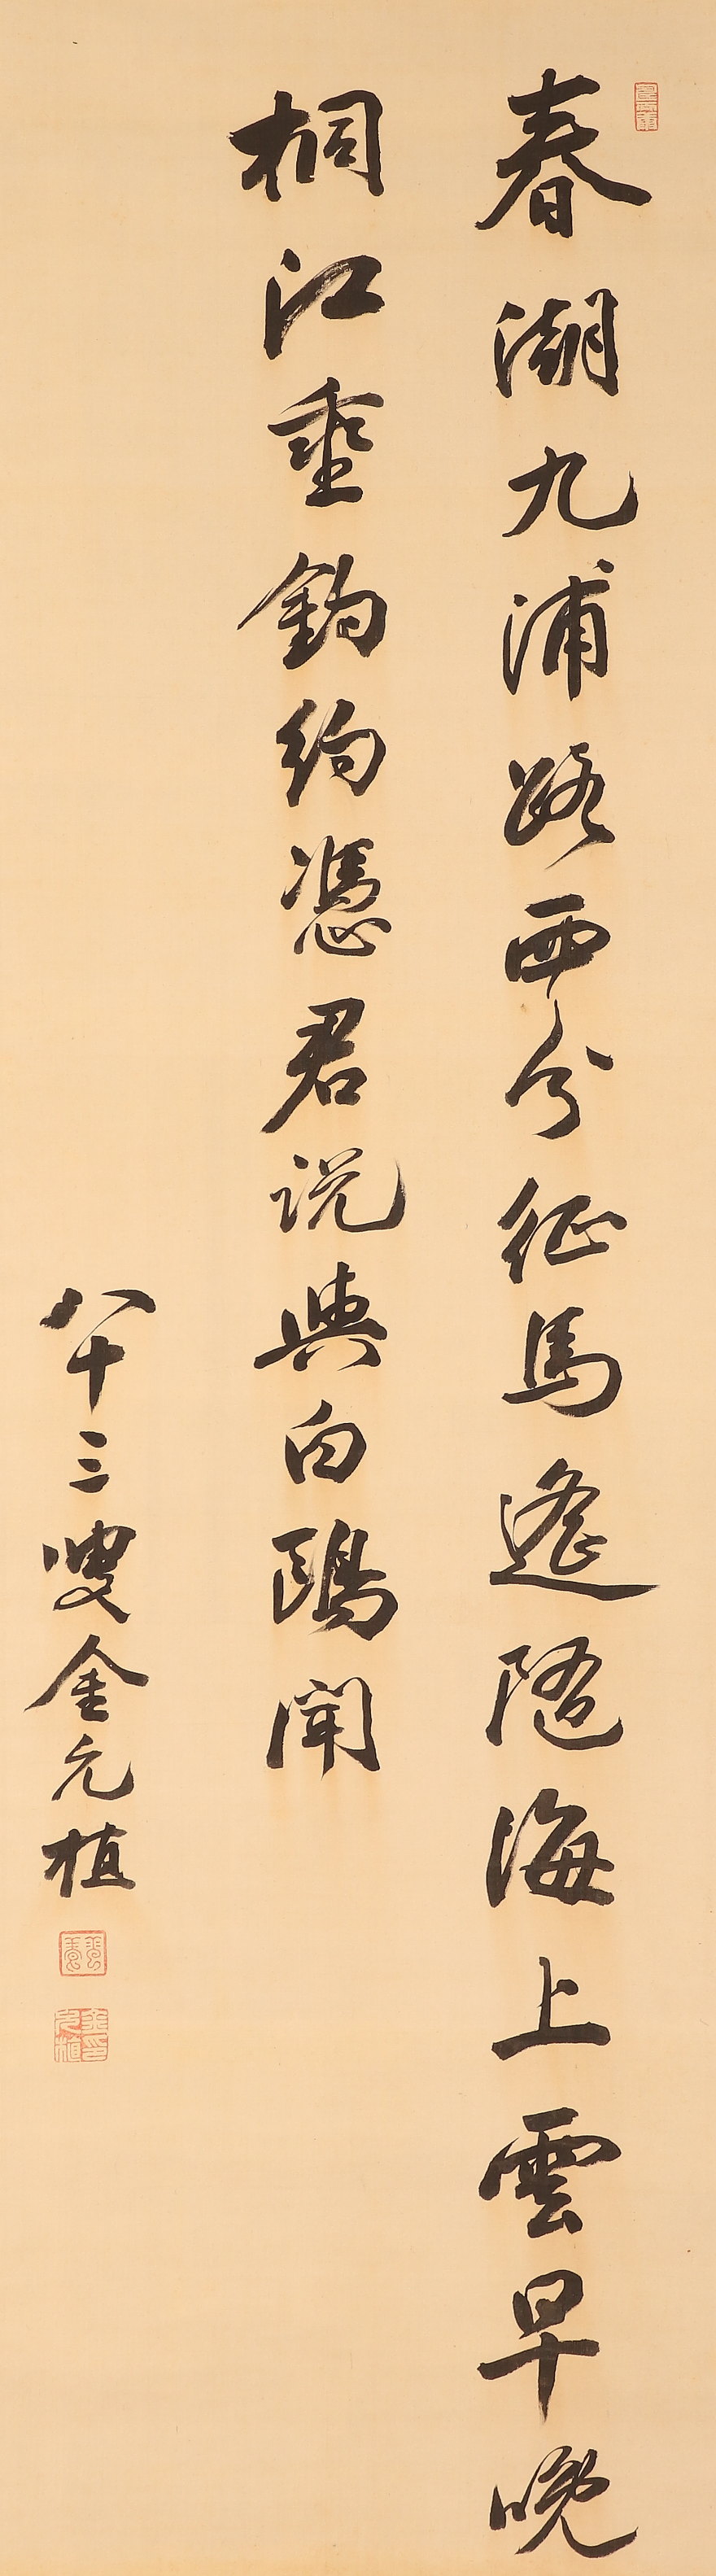 春湖九浦路西分征馬遙隨海上雲早晚
桐江垂釣約憑君說與白鷗聞
八十三叟金元植